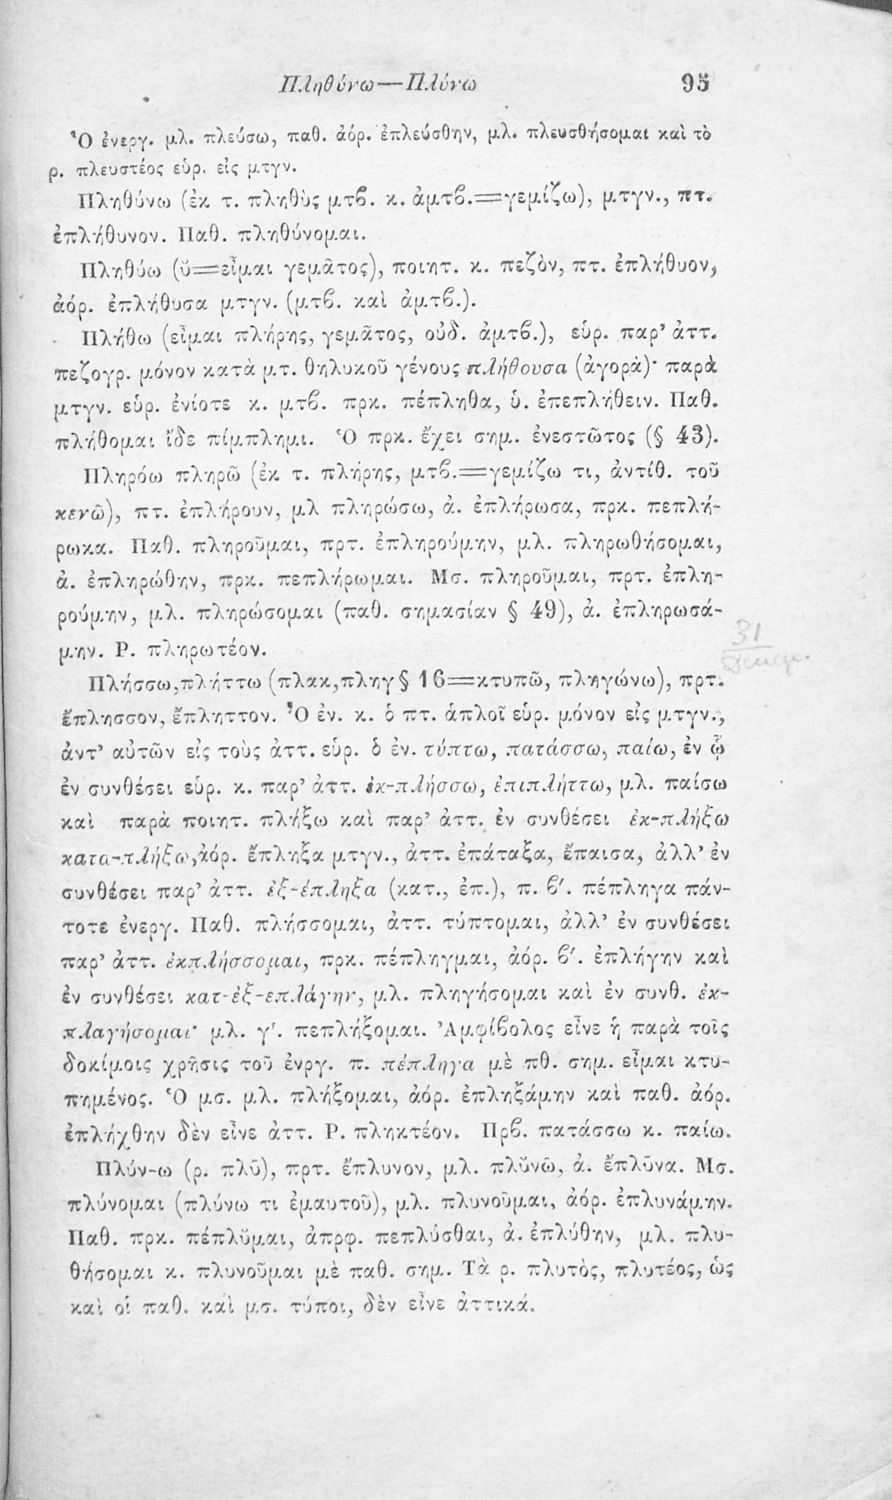 Πληθύνω—Πλύνω 95
Ὁ ἐνεργ. μλ. πλεύσω, παθ. ἀόρ. ἐπλεύσθην, μλ. πλευσθήσομαι καὶ τὸ
ρ. πλευστέος εὑρ. εἰς μτγν.
Πληθύνω (ἐκ τ. πληθὺς μτβ. κ. ἀμτβ.=γεμίζω), μτγν., πτ.
ἐπλήθυνον. Παθ. πληθύνομαι.
Πληθύω (ῠ=εἶμαι γεμᾶτος), ποιητ. κ. πεζὸν, πτ. ἐπλήθυον,
ἀόρ. ἐπλήθυσα μτγν. (μτβ. καὶ ἀμτβ.).
Πλήθω (εἶμαι πλήρης, γεμᾶτος, οὐδ. ἀμτβ.), εὑρ. παρ’ ἀττ.
πεζογρ. μόνον κατὰ μτ. θηλυκοῦ γένους πλήθουσα (ἀγορὰ)· παρὰ
μτγν. εὑρ. ἐνίοτε κ. μτβ. πρκ. πέπληθα, ὑ. ἐπεπλήθειν. Παθ.
πλήθομαι ἴδε πίμπλημι. Ὁ πρκ. ἔχει σημ. ἐνεστῶτος (§ 43).
Πληρόω πληρῶ (ἐκ τ. πλήρης, μτβ.=γεμίζω τι, ἀντίθ. τοῦ
κενῶ), πτ. ἐπλήρουν, μλ πληρώσω, ἀ. ἐπλήρωσα, πρκ. πεπλή-
ρωκα. Παθ. πληροῦμαι, πρτ. ἐπληρούμην, μλ. πληρωθήσομαι,
ἀ. ἐπληρώθην, πρκ. πεπλήρωμαι. Μσ. πληροῦμαι, πρτ. ἐπλη-
ρούμην, μλ. πληρώσομαι (παθ. σημασίαν § 49), ἀ. ἐπληρωσά-
μην. Ρ. πληρωτέον.
31
Πλήσσω,πλήττω (πλακ,πληγ § 16=κτυπῶ, πληγώνω), πρτ.
ἔπλησσον, ἔπληττον. Ὁ ἐν. κ. ὁ πτ. ἁπλοῖ εὑρ. μόνον εἰς μτγν.,
ἀντ’ αὐτῶν εἰς τοὺς ἀττ. εὑρ. ὁ ἐν. τύπτω, πατάσσω, παίω, ἐν ᾧ
ἐν συνθέσει εὑρ. κ. παρ’ ἀττ. ἐκ-πλήσσω, ἐπιπλήττω, μλ. παίσω
καὶ παρὰ ποιητ. πλήξω καὶ παρ’ ἀττ. ἐν συνθέσει ἐκ-πλήξω
κατα-πλήξω,ἀόρ. ἔπληξα μτγν., ἀττ. ἐπάταξα, ἔπαισα, ἀλλ’ ἐν
συνθέσει παρ’ ἀττ. ἐξ-έπληξα (κατ., ἐπ.), π. β′. πέπληγα πάν-
τοτε ἐνεργ. Παθ. πλήσσομαι, ἀττ. τύπτομαι, ἀλλ’ ἐν συνθέσει
παρ’ ἀττ. ἐκπλήσσομαι, πρκ. πέπληγμαι, ἀόρ. β′. ἐπλήγην καὶ
ἐν συνθέσει κατ-ἐξ-επλάγην, μλ. πληγήσομαι καὶ ἐν συνθ. ἐκ-
πλαγήσομαι· μλ. γ′. πεπλήξομαι. Ἀμφίβολος εἶνε ἡ παρὰ τοῖς
δοκίμοις χρῆσις τοῦ ἐνργ. π. πέπληγα μὲ πθ. σημ. εἶμαι κτυ-
πημένος. Ὁ μσ. μλ. πλήξομαι, ἀόρ. ἐπληξάμην καὶ παθ. ἀόρ.
ἐπλήχθην δὲν εἶνε ἀττ. Ρ. πληκτέον. Πρβ. πατάσσω κ. παίω.
Πλύν-ω (ρ. πλῠ), πρτ. ἔπλυνον, μλ. πλῠνῶ, ἀ. ἔπλῡνα. Μσ.
πλύνομαι (πλύνω τι ἐμαυτοῦ), μλ. πλυνοῦμαι, ἀόρ. ἐπλυνάμην.
Παθ. πρκ. πέπλῠμαι, ἀπρφ. πεπλύσθαι, ἀ. ἐπλύθην, μλ. πλυ-
θήσομαι κ. πλυνοῦμαι μὲ παθ. σημ. Τὰ ρ. πλυτὸς, πλυτέος, ὡς
καὶ οἱ παθ. καὶ μσ. τύποι, δὲν εἶνε ἀττικά.